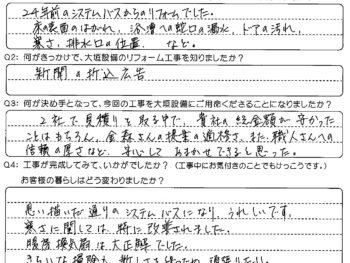 24年前のシステムバスからのリフォームでした。
床の表面のはがれ、浴槽への蛇口の漏水、ドアの汚れ、
寒さ、排水口の位置 など。
Q2: 何がきっかけで、大垣設備のリフォーム工事を知りましたか?
新聞の折込広告
Q3: 何が決め手となって、今回の工事を大垣設備にご用命くださることになりましたか?
2社で見積りを取る中で、貴社の総金額が安かった
ことはもちろん、金森さんの提案の適格さ、また職人さんへの
信頼の厚さなど、安心しておまかせできると思った。
Q4: 工事が完成してみて、いかがでしたか?(工事中にお気付きのことでもけっこうです。)
お客様の暮らしはどう変わりましたか?
思い描いた通りのシステムバスになり、うれしいです。
寒さに関しては、特に改善されました。
暖房換気扇は大正解でした。
きらいな掃除も